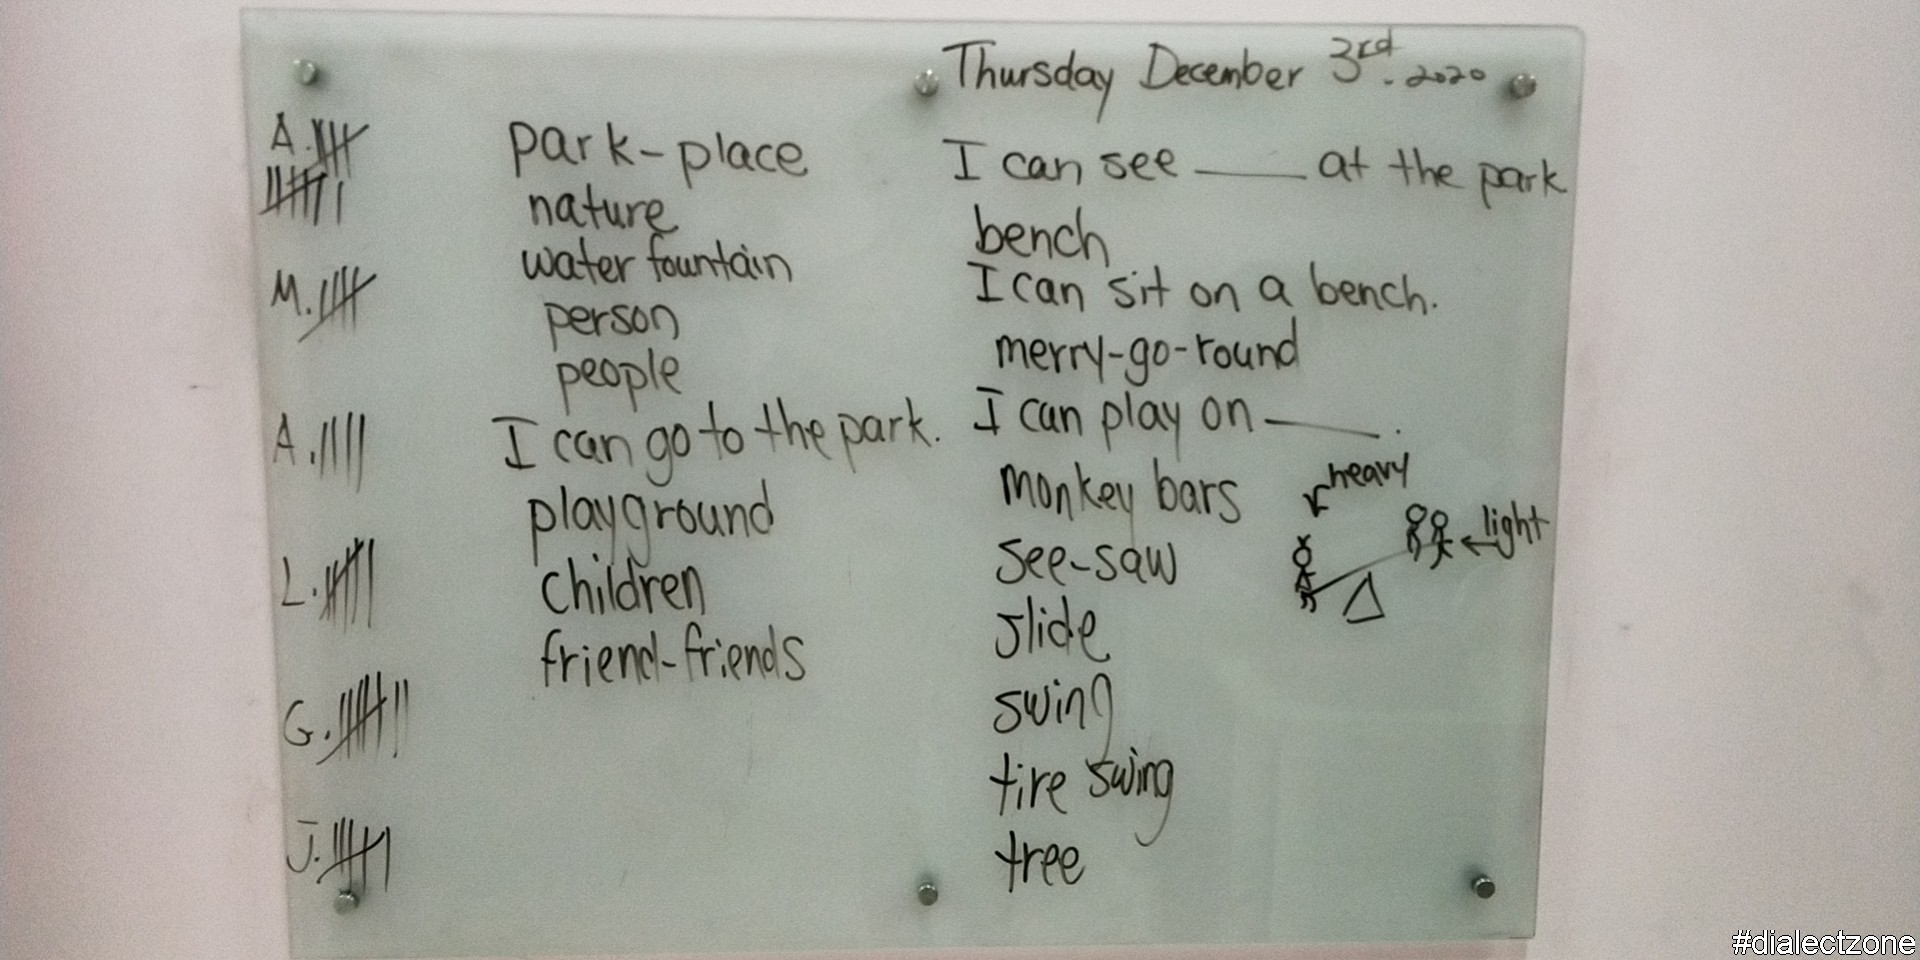 Thursday December 3rd. 2020
A.
M.
A.
L.
G.
J.
park-place
nature
water fountain
person
people
I can go to the park.
playground
children
friend-friends
I can see ____ at the park
bench
I can sit on a bench.
merry-go-round
I can play on ____.
monkey bars
heavy
light
see-saw
slide
swing
tire swing
tree
#dialectzone